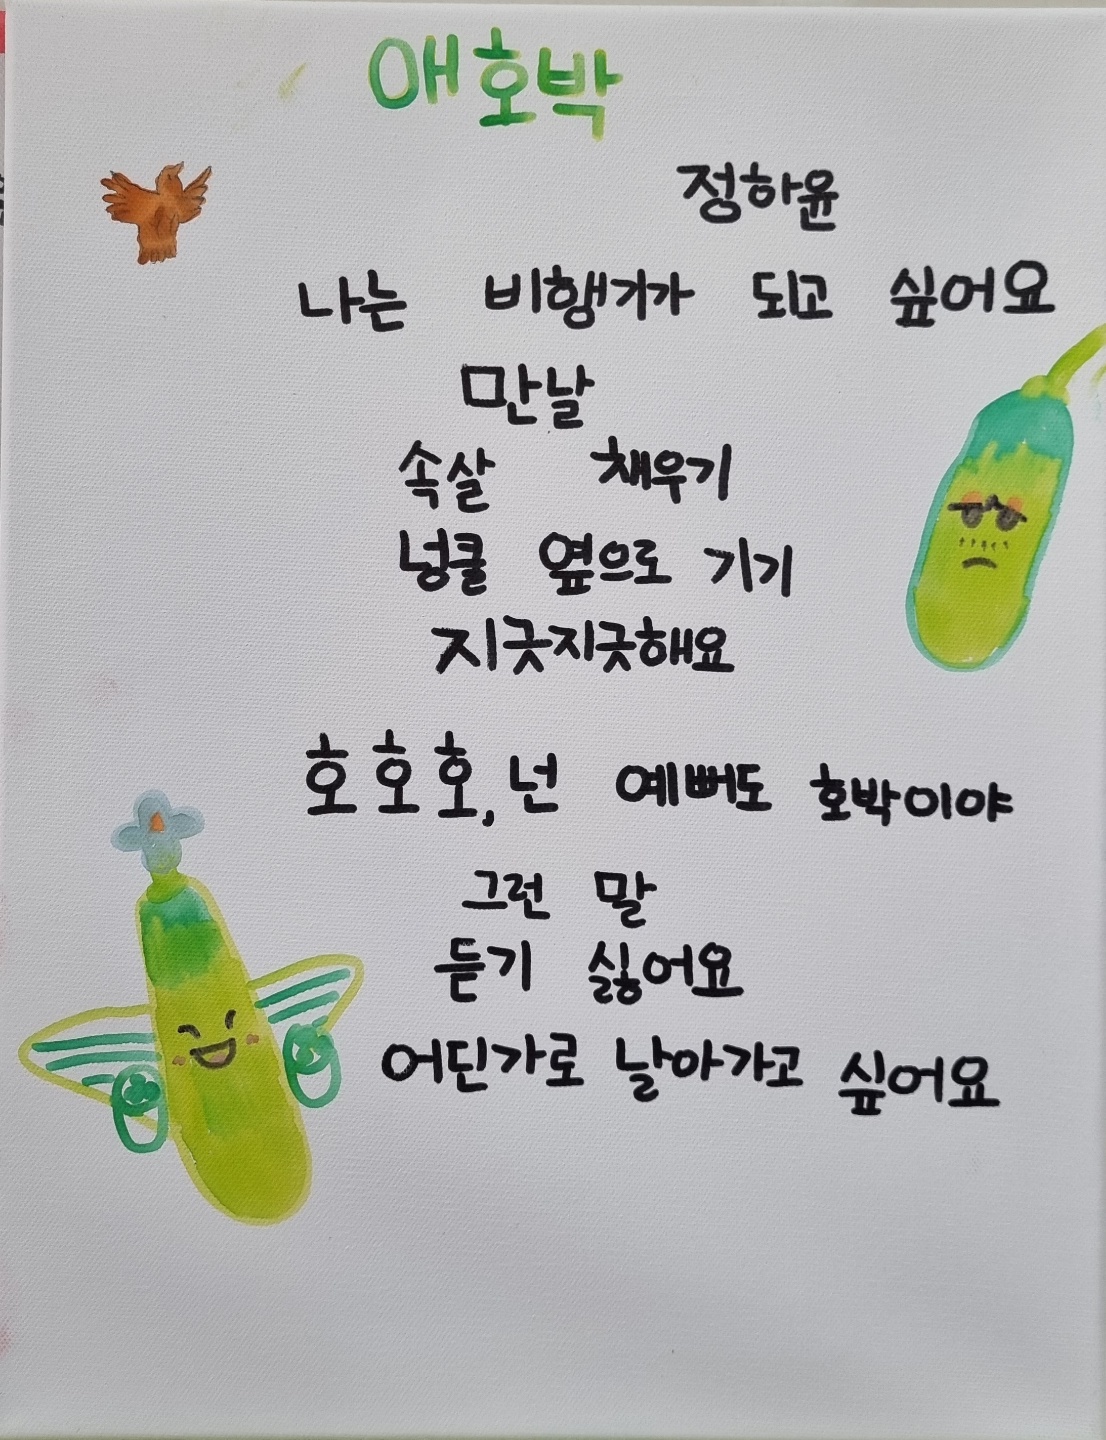 애호박
정하윤
나는 비행기가 되고 싶어요
만날
속살 채우기
넝쿨 옆으로 기기
지긋지긋해요
호호호, 넌 예뻐도 호박이야
그런 말
듣기 싫어요
어딘가로 날아가고 싶어요